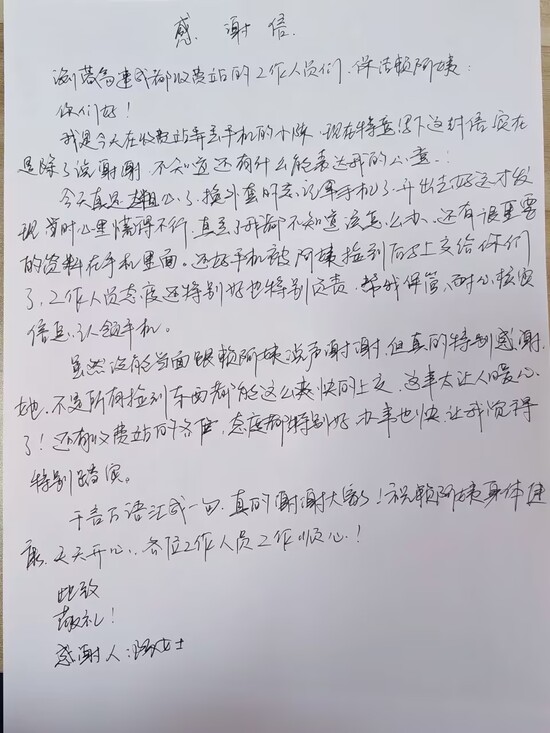 感谢信
蓉高速成都收费站的工作人员们、保洁赖阿姨:
你们好!
我是今天在收费站弄丢手机的小陈,现在特意写下这封信,实在
是除了说谢谢,不知道还有什么能表达我的心意。
今天真是太粗心了,换外套时忘记拿手机了,开出去好远才发
现,当时心里慌得不行,真丢了我都不知道该怎么办,还有很重要
的资料在手机里面。还好手机被阿姨捡到后马上交给你们
了,工作人员态度还特别好也特别负责,帮我保管,耐心核实
信息,认领手机。
虽然没能当面跟赖阿姨说声谢谢,但真的特别感谢
她,不是所有捡到东西都能这么爽快的上交,这事太让人暖心
了!还有收费站的各位,态度都特别好,办事也快,让我觉得
特别踏实。
千言万语汇成一句,真的谢谢大家了!祝赖阿姨身体健
康,天天开心,各位工作人员工作顺心!
此致
敬礼!
感谢人:陈女士